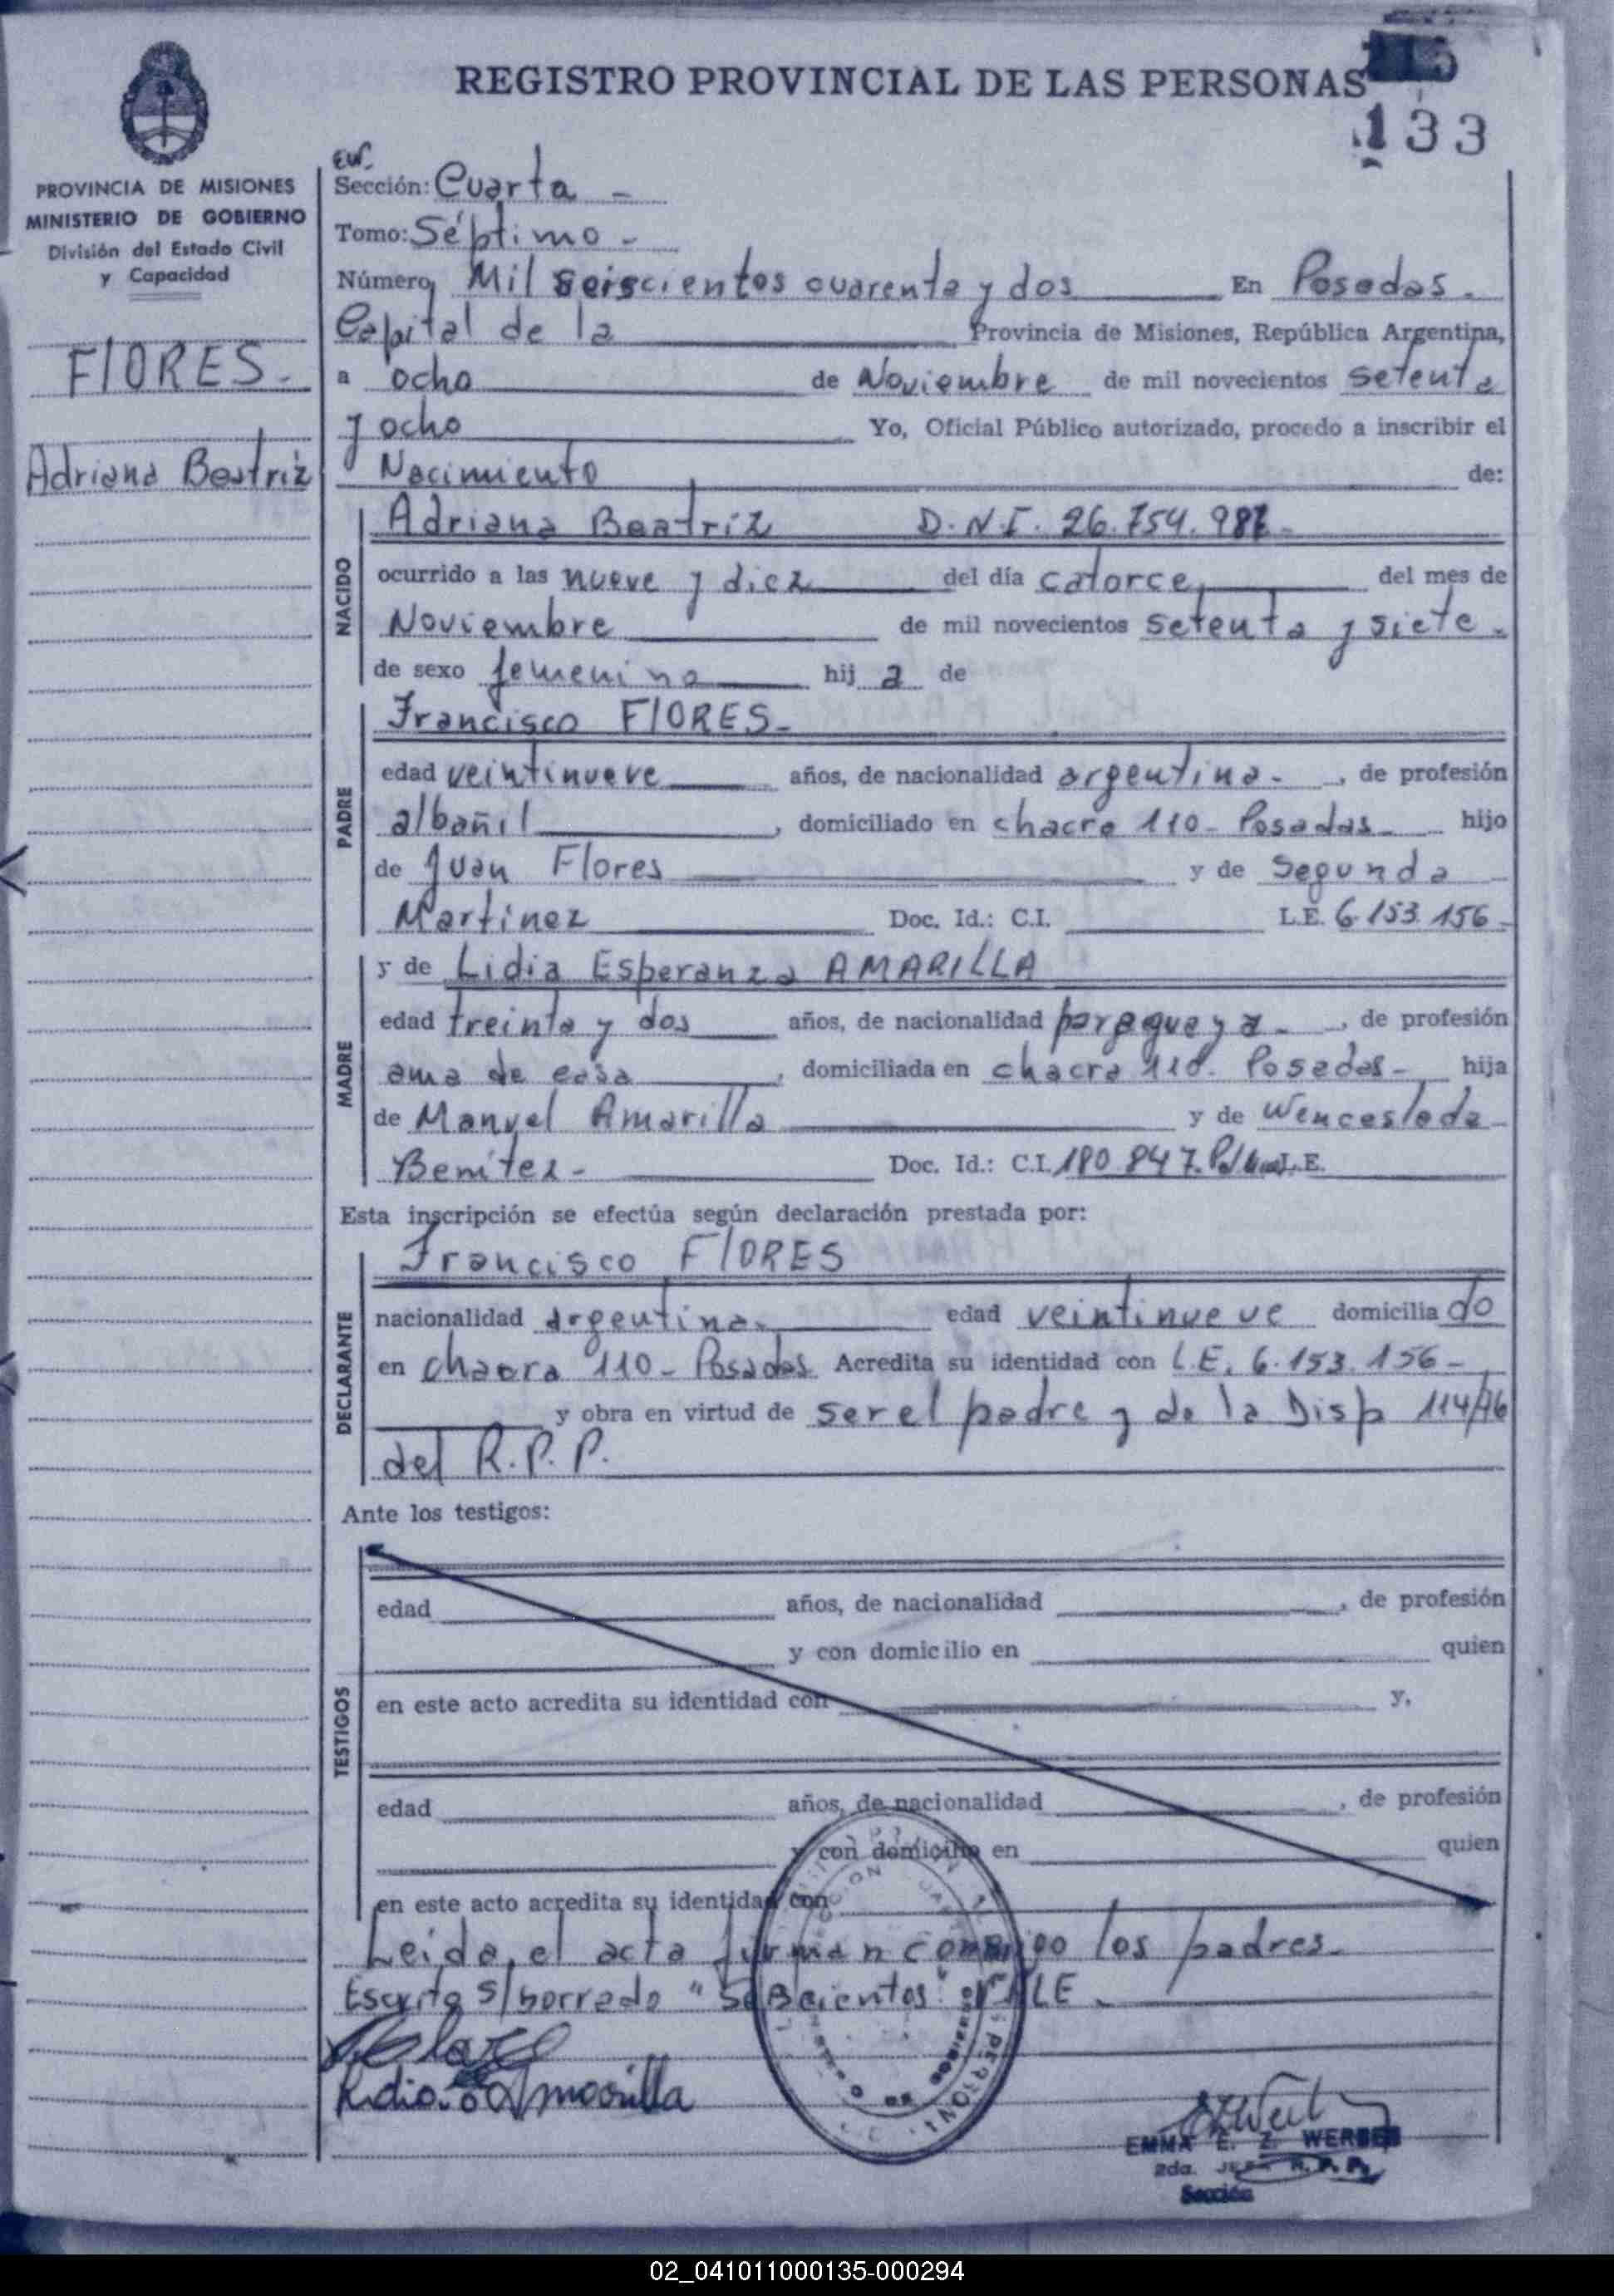 REGISTRO PROVINCIAL DE LAS PERSONAS
133
PROVINCIA DE MISIONES
MINISTERIO DE GOBIERNO
División del Estado Civil
y Capacidad
FLORES.
Adriana Beatriz
Sección: Cuarta -
Tomo: Séptimo -
Número, Mil seiscientos cuarenta y dos En Posadas.
Capital de la Provincia de Misiones, República Argentina,
a ocho de Noviembre de mil novecientos setenta
y ocho Yo, Oficial Público autorizado, procedo a inscribir el
Nacimiento de:
NACIDO
Adriana Beatriz D.N.I. 26.754.987-
ocurrido a las nueve y diez del día catorce, del mes de
Noviembre de mil novecientos setenta y siete.
de sexo femenino hij a de
PADRE
Francisco FLORES-
edad veintinueve años, de nacionalidad argentina. , de profesión
albañil , domiciliado en chacra 110- Posadas- hijo
de Juan Flores y de Segunda
Martinez Doc. Id.: C.I. L.E. 6.153.156-
MADRE
y de Lidia Esperanza AMARILLA
edad treinta y dos años, de nacionalidad paraguaya. , de profesión
ama de casa , domiciliada en chacra 110. Posadas- hija
de Manuel Amarilla y de Wenceslada
Benítez- Doc. Id.: C.I. 180.847. L.E.
Esta inscripción se efectúa según declaración prestada por:
DECLARANTE
Francisco FLORES
nacionalidad argentina. edad veintinueve domicilia do
en chacra 110- Posadas Acredita su identidad con L.E. 6.153.156-
y obra en virtud de ser el padre y de la Disp 114/76
del R.P.P.
Ante los testigos:
TESTIGOS
edad años, de nacionalidad , de profesión
y con domicilio en quien
en este acto acredita su identidad con y,
edad años, de nacionalidad , de profesión
y con domicilio en quien
en este acto acredita su identidad con
Leída, el acta firman conmigo los padres-
Escrito s/borrado "Seiscientos" VALE.
Amarilla
EMMA E. Z. WERBES
2da. JEFA R. P. P.
Sección
02_041011000135-000294